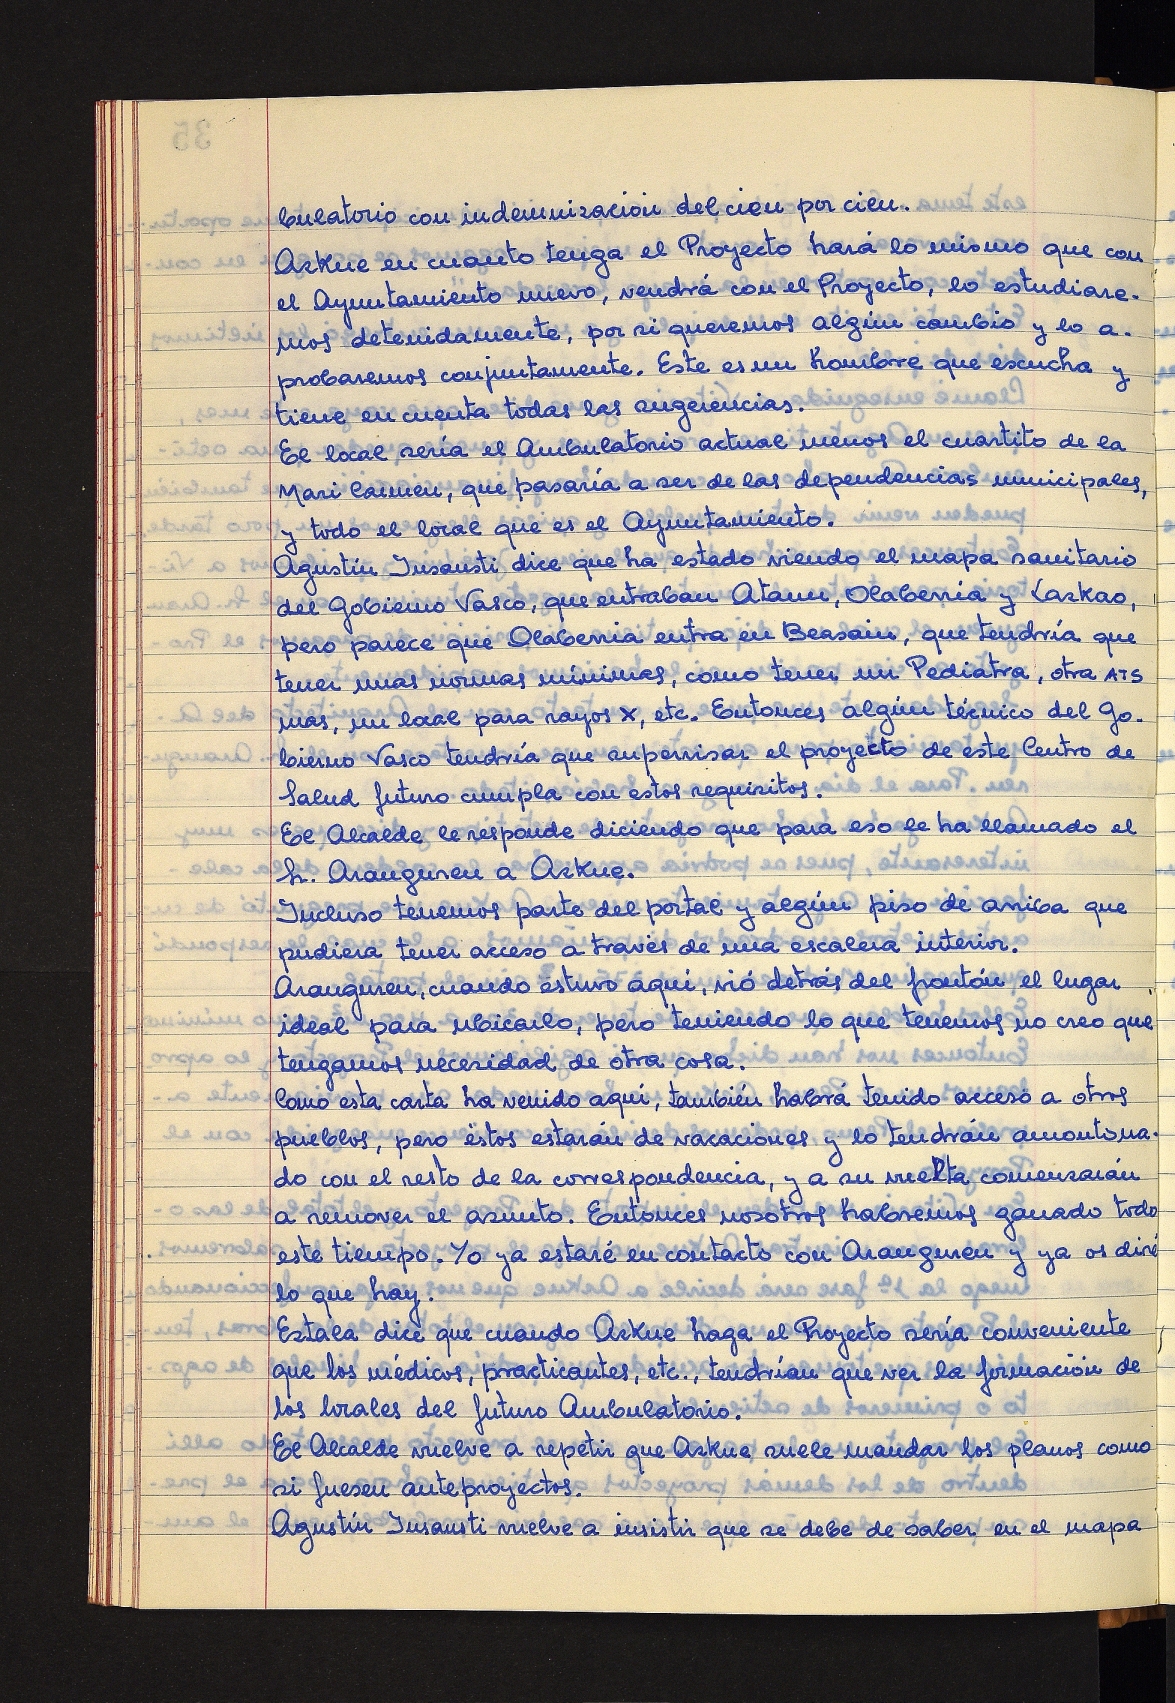 bulatorio con indemnización del cien por cien.
Azkue en cuanto tenga el Proyecto hará lo mismo que con
el Ayuntamiento nuevo, vendrá con el Proyecto, lo estudiare-
mos detenidamente, por si queremos algún cambio y lo a-
probaremos conjuntamente. Este es un hombre que escucha y
tiene en cuenta todas las sugerencias.
El local sería el Ambulatorio actual menos el cuartito de la
Mari Carmen, que pasaría a ser de las dependencias municipales,
y todo el local que es el Ayuntamiento.
Agustín Insausti dice que ha estado viendo el mapa sanitario
del Gobierno Vasco, que entraban Ataun, Olaberria y Lazkao,
pero parece que Olaberria entra en Beasain, que tendría que
tener unas normas mínimas, como tener un Pediatra, otra ATS
mas, un local para rayos X, etc. Entonces algún técnico del Go-
bierno Vasco tendría que supervisar el proyecto de este Centro de
Salud futuro cumpla con estos requisitos.
El Alcalde le responde diciendo que para eso le ha llamado el
Sr. Aranguren a Azkue.
Incluso tenemos parte del portal y algún piso de arriba que
pudiera tener acceso a través de una escalera interior.
Aranguren, cuando estuvo aquí, vió detrás del frontón el lugar
ideal para ubicarlo, pero teniendo lo que tenemos no creo que
tengamos necesidad de otra cosa.
Como esta carta ha venido aquí, también habrá tenido acceso a otros
pueblos, pero éstos estarán de vacaciones y lo tendrán amontona-
do con el resto de la correspondencia, y a su vuelta comenzarán
a remover el asunto. Entonces nosotros habremos ganado todo
este tiempo. Yo ya estaré en contacto con Aranguren y ya os diré
lo que hay.
Eztala dice que cuando Azkue haga el Proyecto sería conveniente
que los médicos, practicantes, etc., tendrían que ver la formación de
los locales del futuro Ambulatorio.
El Alcalde vuelve a repetir que Azkue suele mandar los planos como
si fuesen anteproyectos.
Agustín Insausti vuelve a insistir que se debe de saber en el mapa